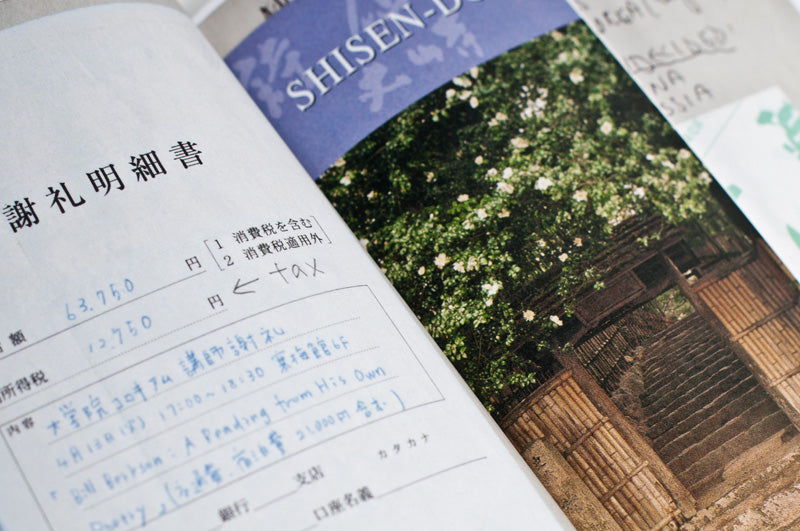 謝礼明細書
額 63,750 円 [1 消費税を含む
2 消費税適用外]
所得税 12,750 円 ← tax
内容
大学院コロキアム 講師謝礼
4月13日(火) 17:00~18:30 寒梅館6F
: A Reading from His Own
Poetry」(交通費、宿泊費 21,000円含む)
銀行 支店 カタカナ
口座名義
SHISEN-DO
DECIDE
NA
SSIA